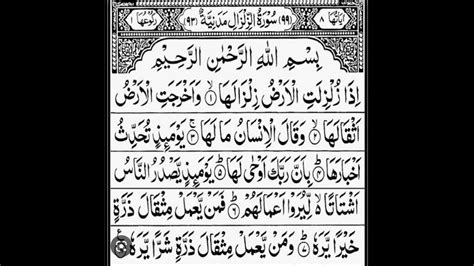 اٰيَاتُهَا ٨ (٩٩) سُوْرَةُ الزِّلْزَالِ مَدَنِيَّةٌ (٩٣) رُكُوْعُهَا ١
بِسْمِ اللّٰهِ الرَّحْمٰنِ الرَّحِيْمِ
اِذَا زُلْزِلَتِ الْاَرْضُ زِلْزَالَهَا ۙ‏ ١ وَاَخْرَجَتِ الْاَرْضُ
اَثْقَالَهَا ۙ ٢ وَقَالَ الْاِنْسَانُ مَا لَهَا ۚ ٣ يَوْمَىِٕذٍ تُحَدِّثُ
اَخْبَارَهَا ۙ ٤ بِاَنَّ رَبَّكَ اَوْحٰى لَهَا ؕ ٥ يَوْمَىِٕذٍ يَّصْدُرُ النَّاسُ
اَشْتَاتًا ۙ۬ لِّيُرَوْا اَعْمَالَهُمْ ؕ ٦ فَمَنْ يَّعْمَلْ مِثْقَالَ ذَرَّةٍ
خَيْرًا يَّرَهٗ ؕ ٧ وَمَنْ يَّعْمَلْ مِثْقَالَ ذَرَّةٍ شَرًّا يَّرَهٗ